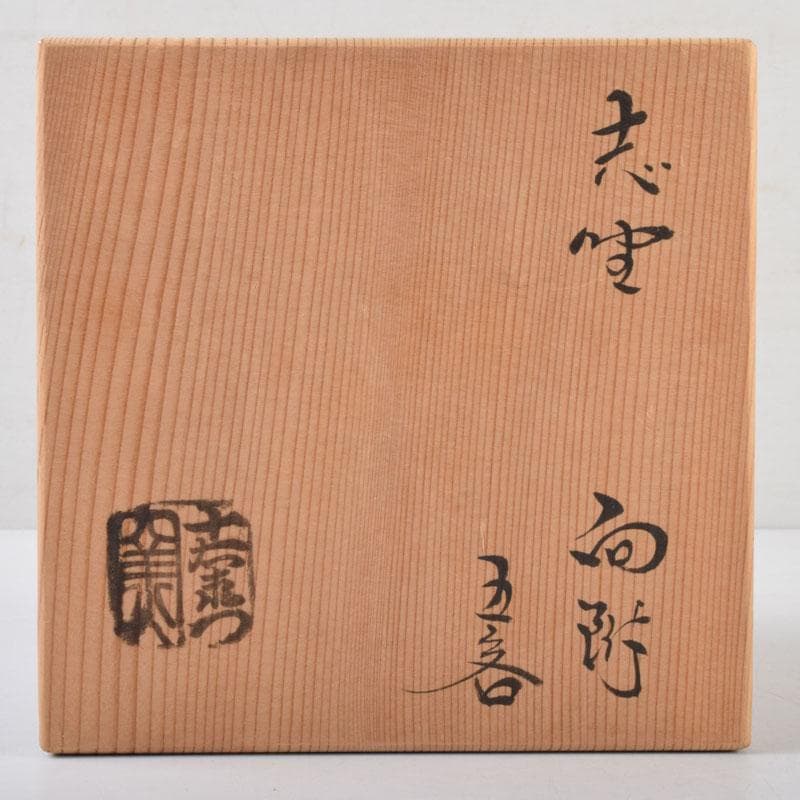 志野
向附
五客